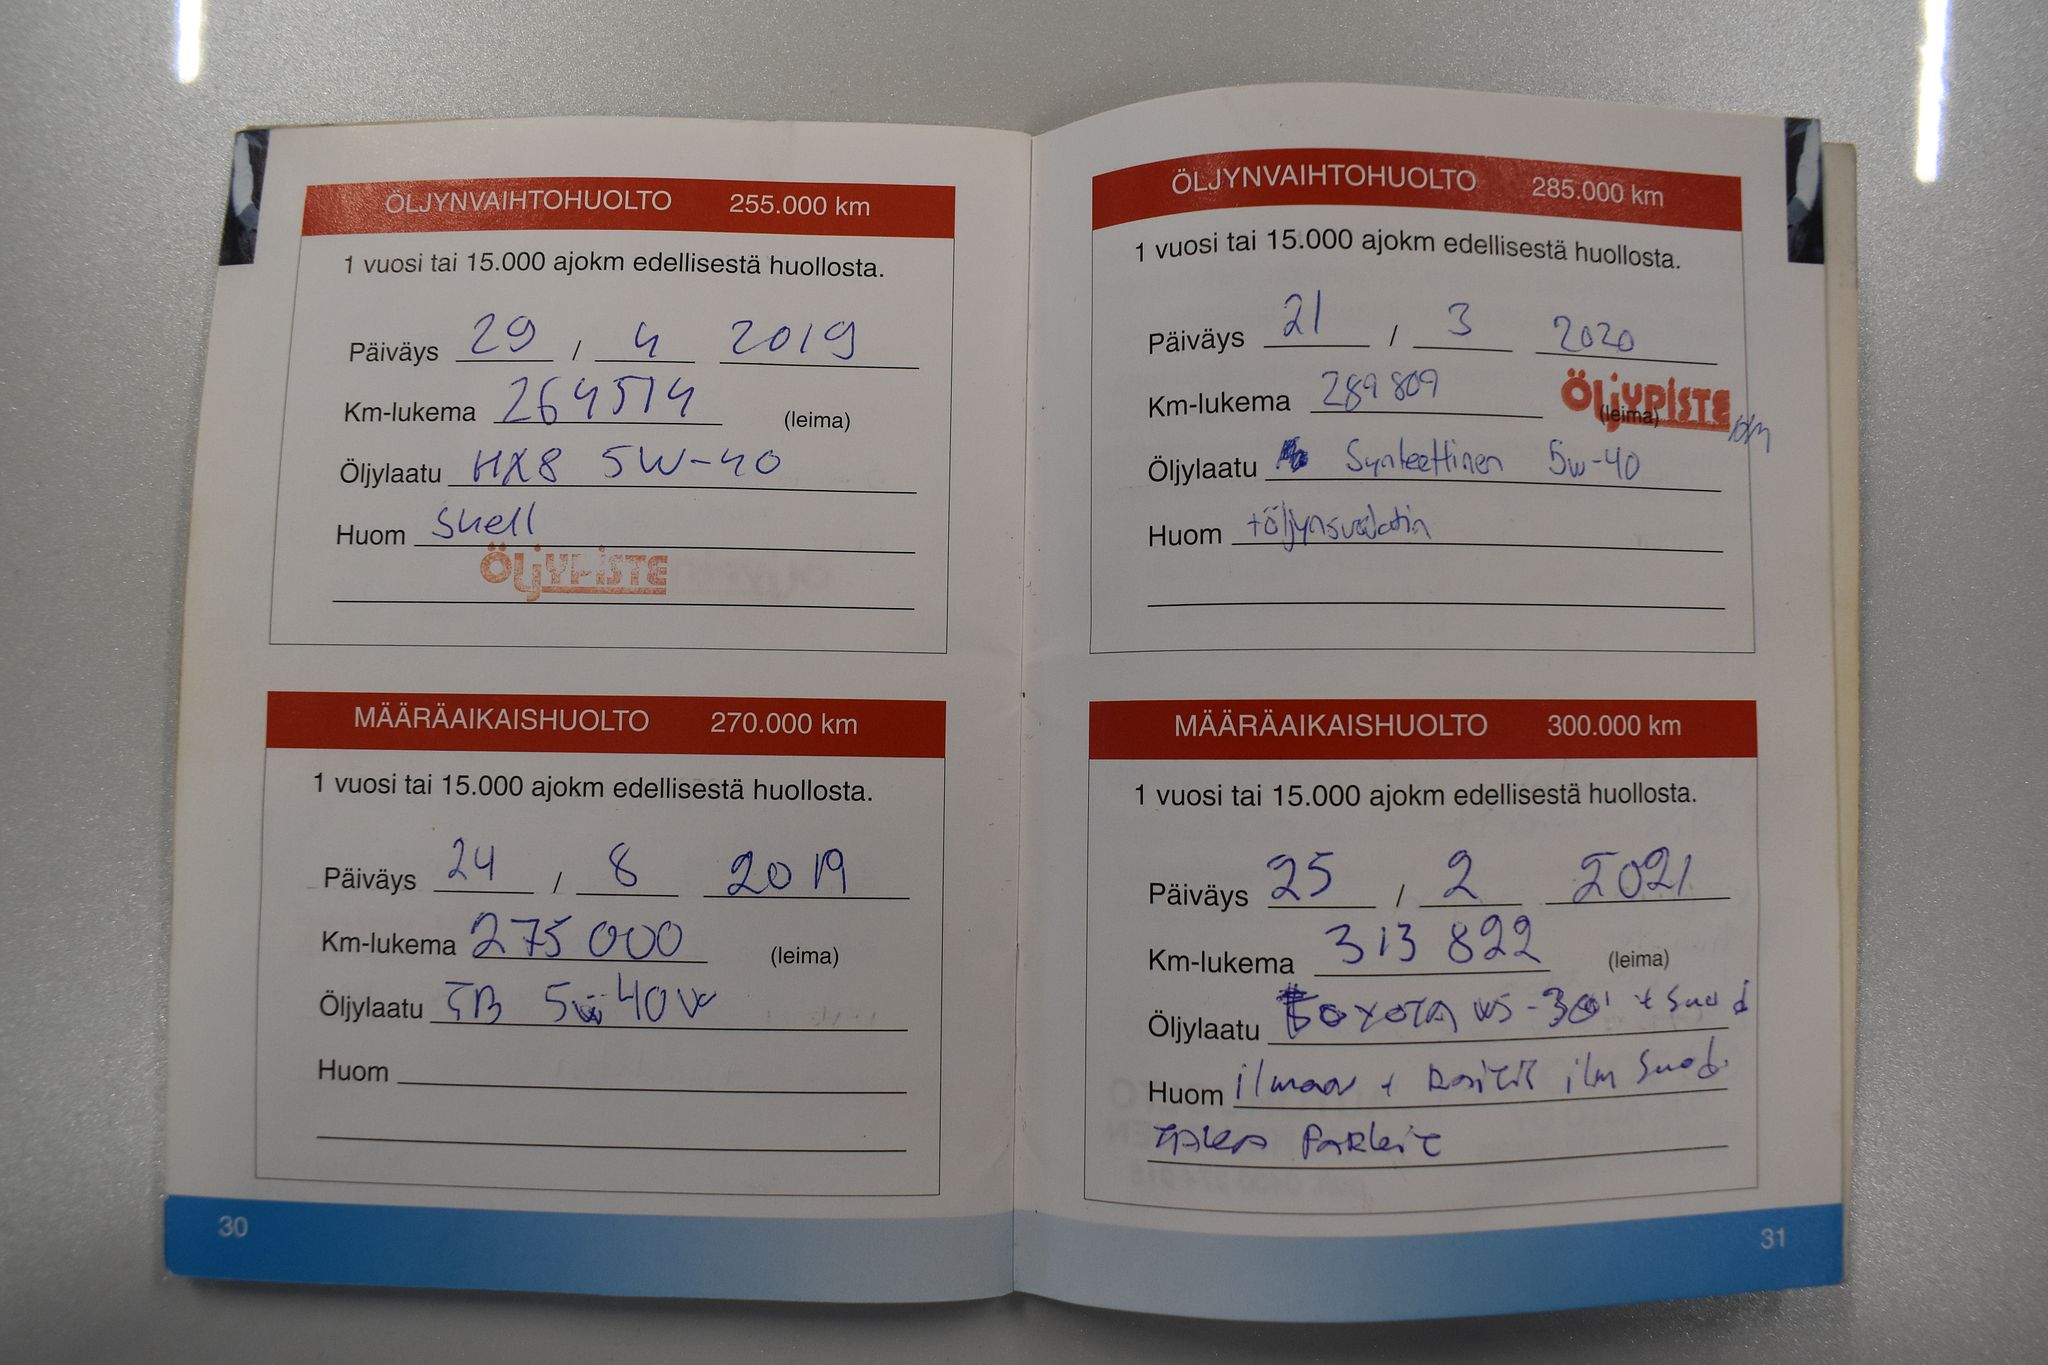 ÖLJYNVAIHTOHUOLTO 255.000 km
1 vuosi tai 15.000 ajokm edellisestä huollosta.
Päiväys 29 / 4 2019
Km-lukema 264514 (leima)
Öljylaatu HX8 5W-40
Huom Shell
ÖljYPiSTE
MÄÄRÄAIKAISHUOLTO 270.000 km
1 vuosi tai 15.000 ajokm edellisestä huollosta.
Päiväys 24 / 8 2019
Km-lukema 275 000 (leima)
Öljylaatu 5w 40
Huom
30
ÖLJYNVAIHTOHUOLTO 285.000 km
1 vuosi tai 15.000 ajokm edellisestä huollosta.
Päiväys 21 / 3 2020
Km-lukema 289809 (leima)
ÖljYPiSTE
Öljylaatu Synteettinen 5w-40
Huom +öljynsuodatin
MÄÄRÄAIKAISHUOLTO 300.000 km
1 vuosi tai 15.000 ajokm edellisestä huollosta.
Päiväys 25 / 2 2021
Km-lukema 313 822 (leima)
Öljylaatu TOYOTA -30 + suod
Huom ilman + ilm suod.